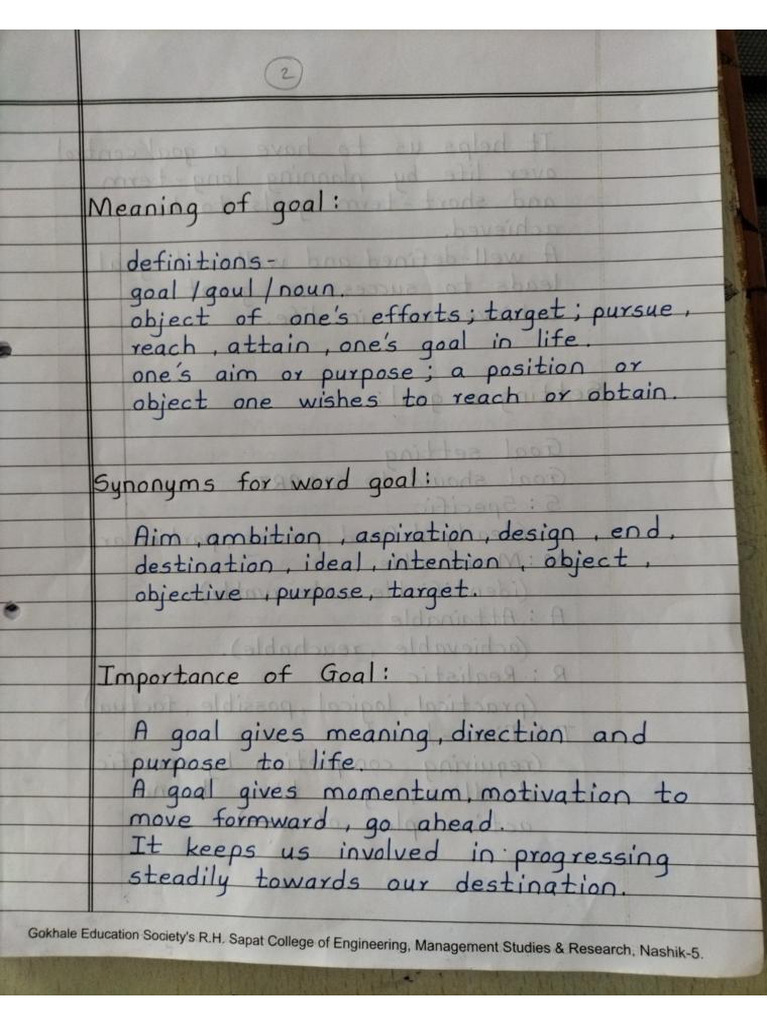 2
Meaning of goal:
definitions-
goal /goul /noun.
object of one's efforts; target; pursue,
reach, attain, one's goal in life.
one's aim or purpose; a position or
object one wishes to reach or obtain.
Synonyms for word goal:
Aim, ambition, aspiration, design, end,
destination, ideal, intention, object,
objective, purpose, target.
Importance of Goal:
A goal gives meaning, direction and
purpose to life.
A goal gives momentum, motivation to
move formward, go ahead.
It keeps us involved in progressing
steadily towards our destination.
Gokhale Education Society's R.H. Sapat College of Engineering, Management Studies & Research, Nashik-5.